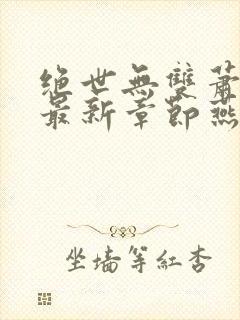 绝世無雙蕭
最新章節燕
坐墙等紅杏